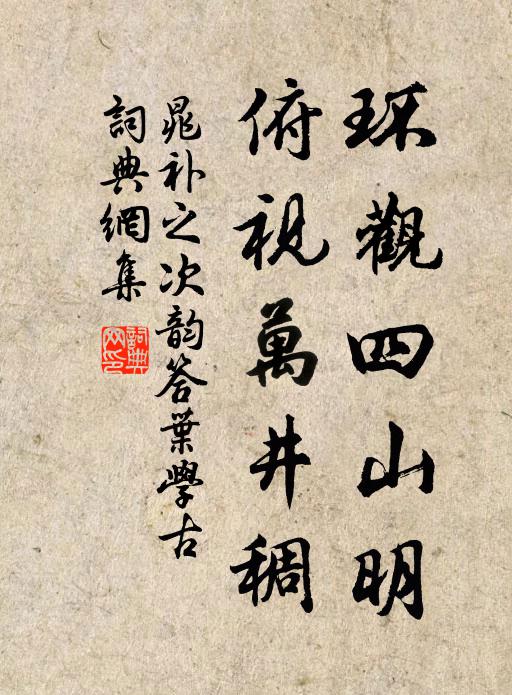 环觀四山明
俯視萬井稠
晁补之次韵答葉學古
詞典網集
詞典网印